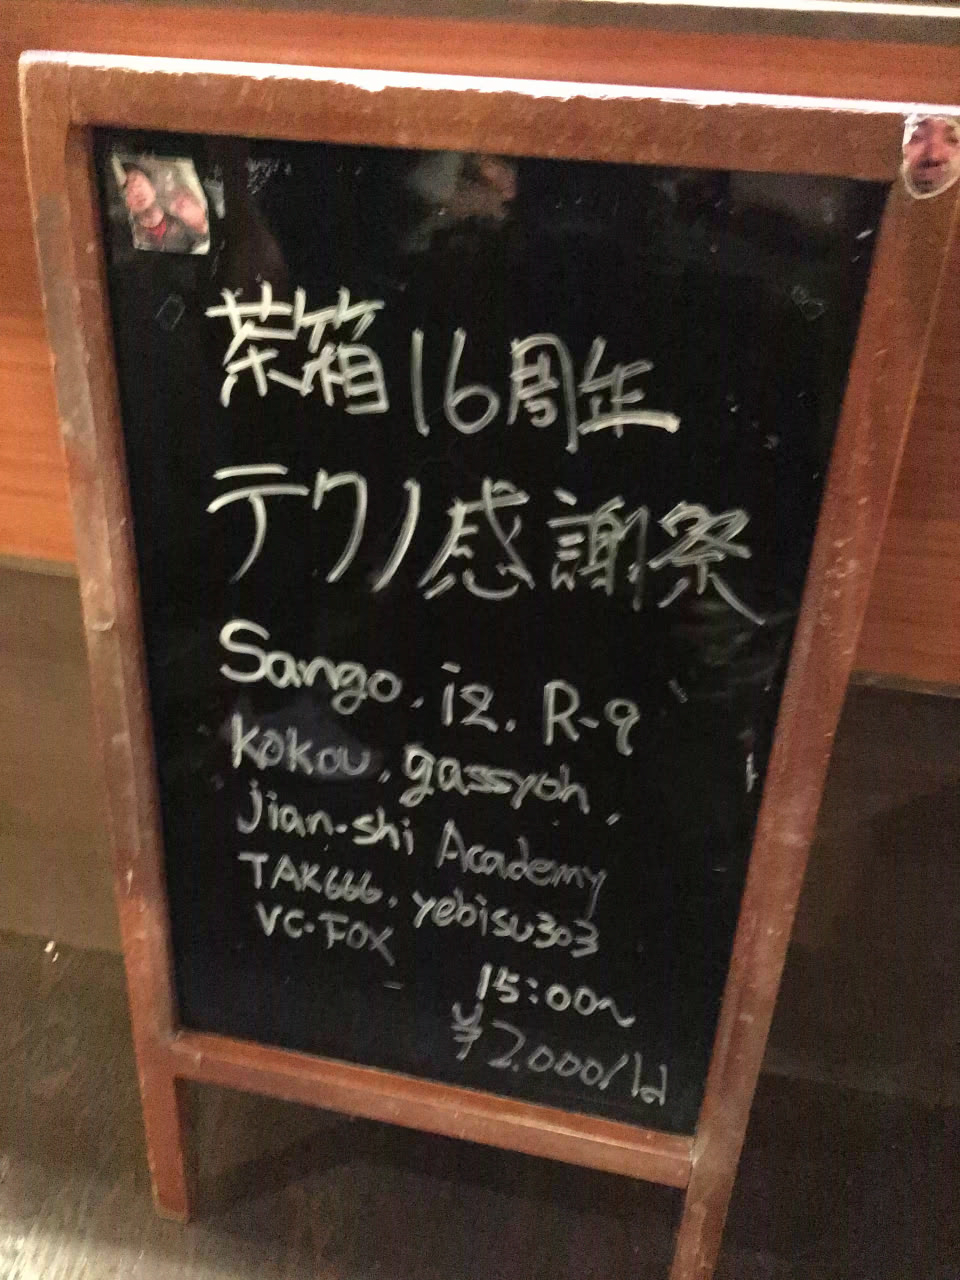 茶箱16周年
テクノ感謝祭
Sango. iz. R-9
kokou. gassyoh.
jian-shi Academy
TAK666. yebisu303
VC-FOX
15:00〜
¥2,000/1d